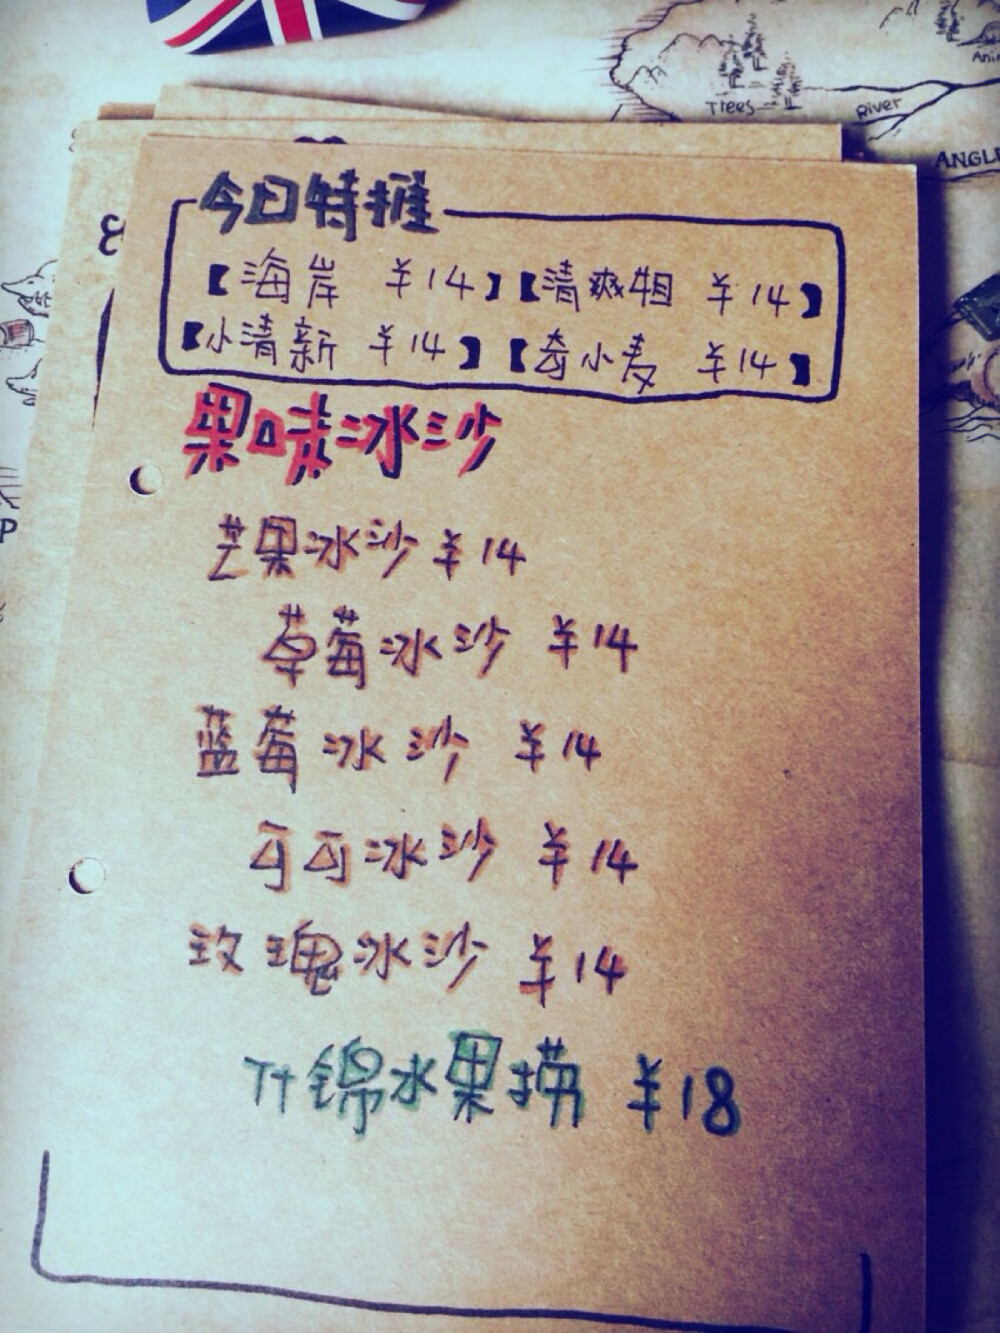 Trees
River
ANGLE
今日特推
【海岸 ¥14】【清爽妞 ¥14】
【小清新 ¥14】【奇小麦 ¥14】
果味冰沙
芒果冰沙 ¥14
草莓冰沙 ¥14
蓝莓冰沙 ¥14
可可冰沙 ¥14
玫瑰冰沙 ¥14
什锦水果捞 ¥18